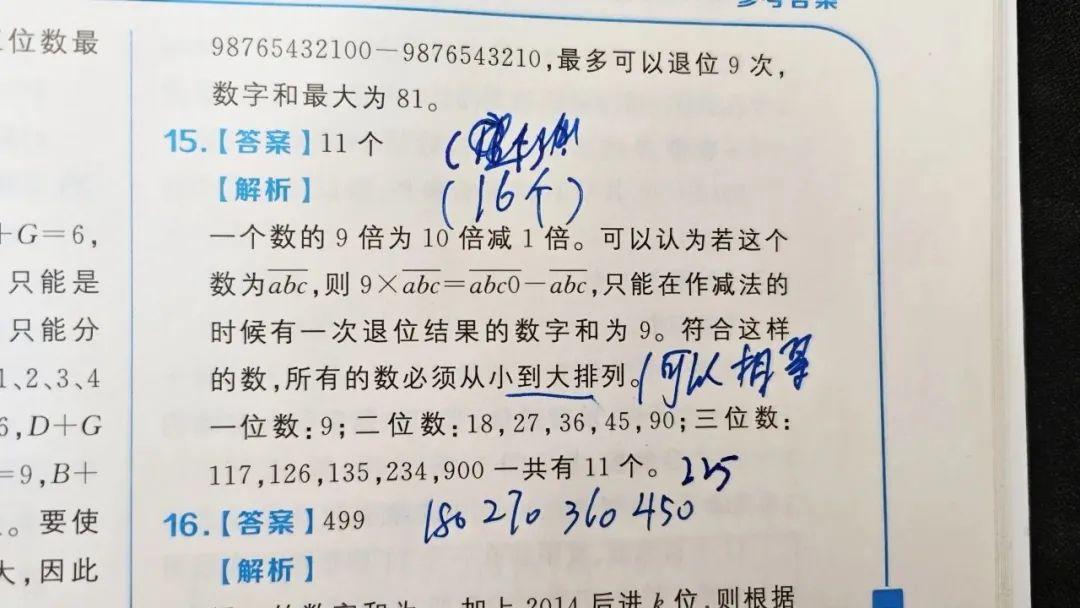 参考答案
位数最
+G=6,
只能是
只能分
1、2、3、4
6,D+G
=9,B+
。要使
大,因此
98765432100-9876543210,最多可以退位9次,
数字和最大为81。
15.【答案】11个
【解析】
(16个)
一个数的9倍为10倍减1倍。可以认为若这个
数为abc,则9×abc=abc0-abc,只能在作减法的
时候有一次退位结果的数字和为9。符合这样
的数,所有的数必须从小到大排列。(可以相等
一位数:9;二位数:18,27,36,45,90;三位数:
117,126,135,234,900一共有11个。225
180 270 360 450
16.【答案】499
【解析】
的数字和为 加上2014后进k位,则根据